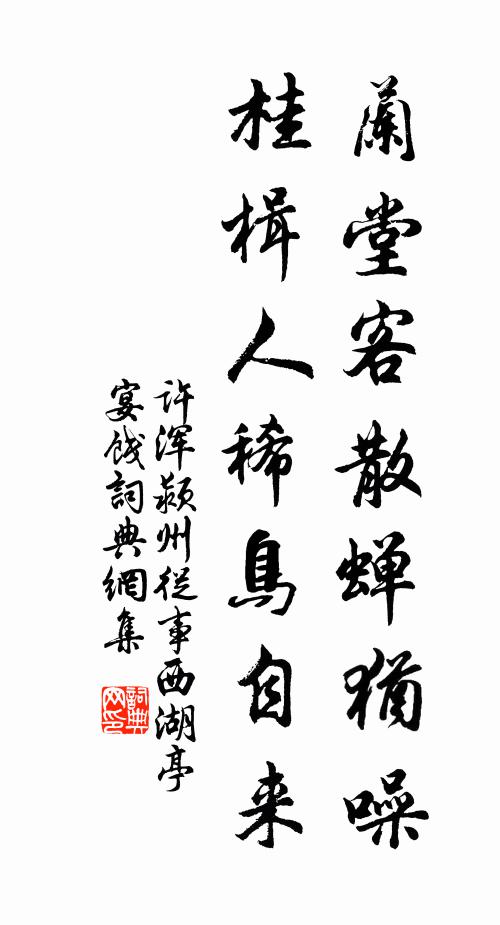 蘭堂客散蝉猶噪
桂楫人稀鳥自来
许浑颍州從事西湖亭
宴餞詞典網集
詞典
网印